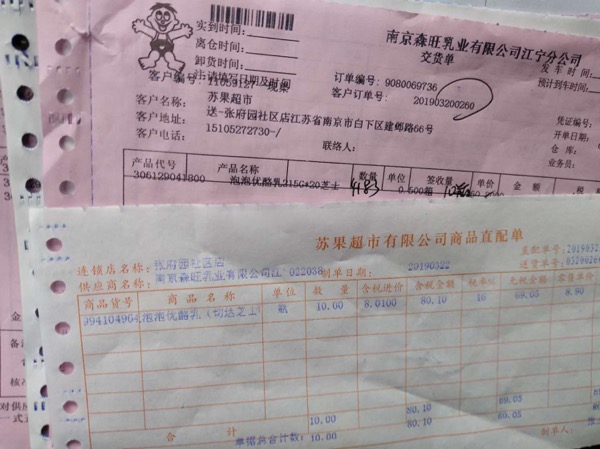 实到时间:
离仓时间:
卸货时间:
注:请填写日期及时间
南京森旺乳业有限公司江宁分公司
交货单
发车时间:
预计到车时间:
客户编号: 11059127
订单编号: 9080069736
客户名称: 苏果超市
客户订单号: 201903200260
客户地址: 送-张府园社区店江苏省南京市白下区建邺路66号
凭证编号:
开单日期:
客户电话: 15105272730-/
联系人:
仓库:
业务员:
产品代号 产品名称 数量 单位 签收量 单价 金额 税
306129041800 泡泡优酪乳215G*20芝士 0.500箱
苏果超市有限公司商品直配单
连锁店名称: 张府园社区店
直配单号: 2019032
供应商名称: 南京森旺乳业有限公司江 022038
制单日期: 20190322
送货单号: 0320026
商品货号 商品名称 单位 数量 含税进价 含税金额 税率% 无税金额 零售单价
994104904 泡泡优酪乳(切达芝士 瓶 10.00 8.0100 80.10 16 69.05 8.90
10.00 80.10 69.05
合计 80.10
单据总合计数: 10.00
制单人: